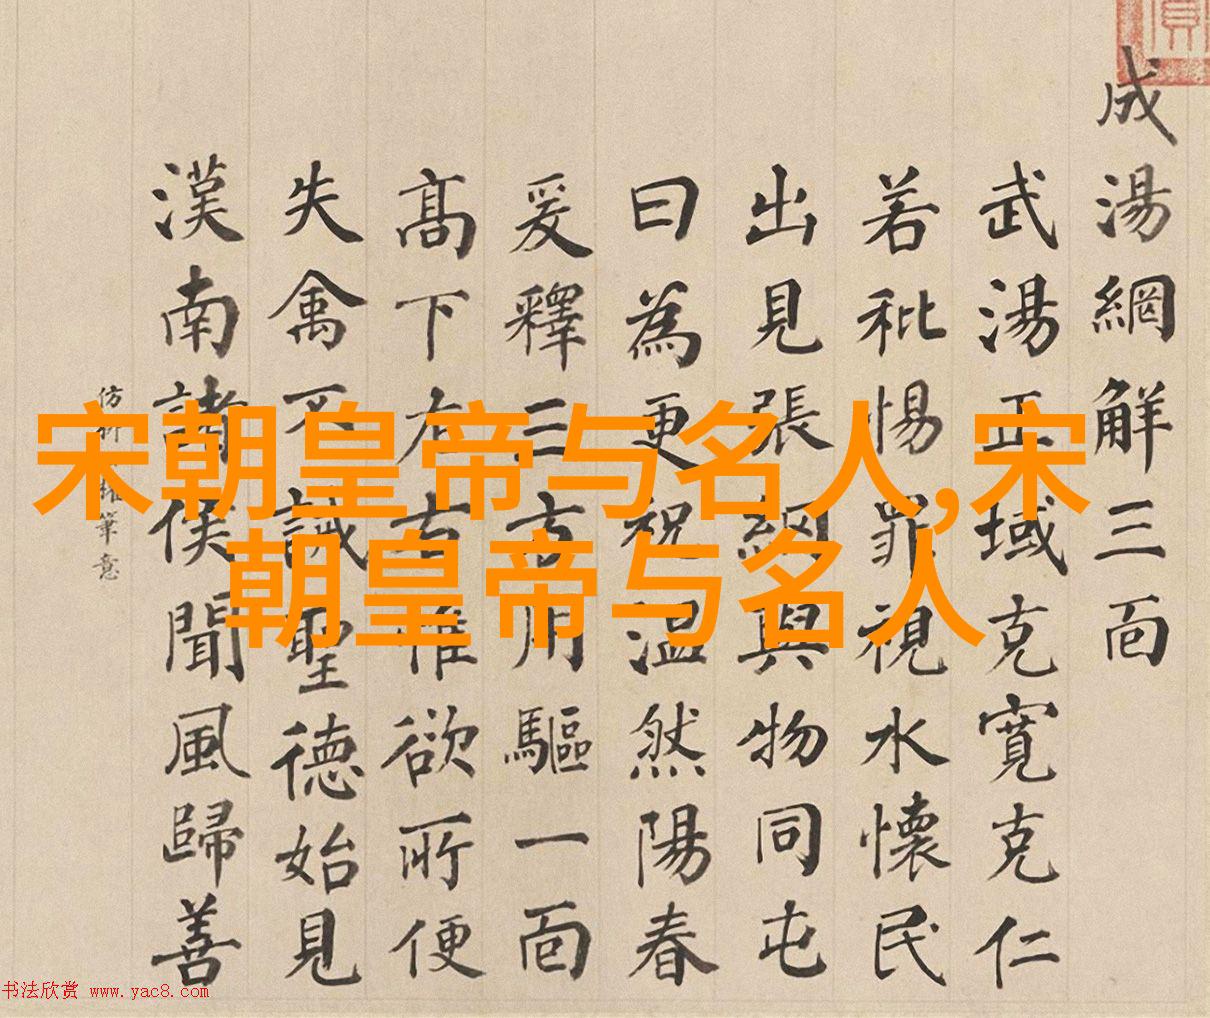 成湯網解三面
武湯正域克寬克仁
若秕惕罪視水懷民
出見張網與物同屯
曰為更祝温然陽春
爰釋三方用驅一面
髙下左右惟欲所便
失禽不誡聖德始見
漢南諸侯聞風歸善
仿 筆意
宋朝皇帝与名人,宋
朝皇帝与名人
书法欣赏 www.yac8.com